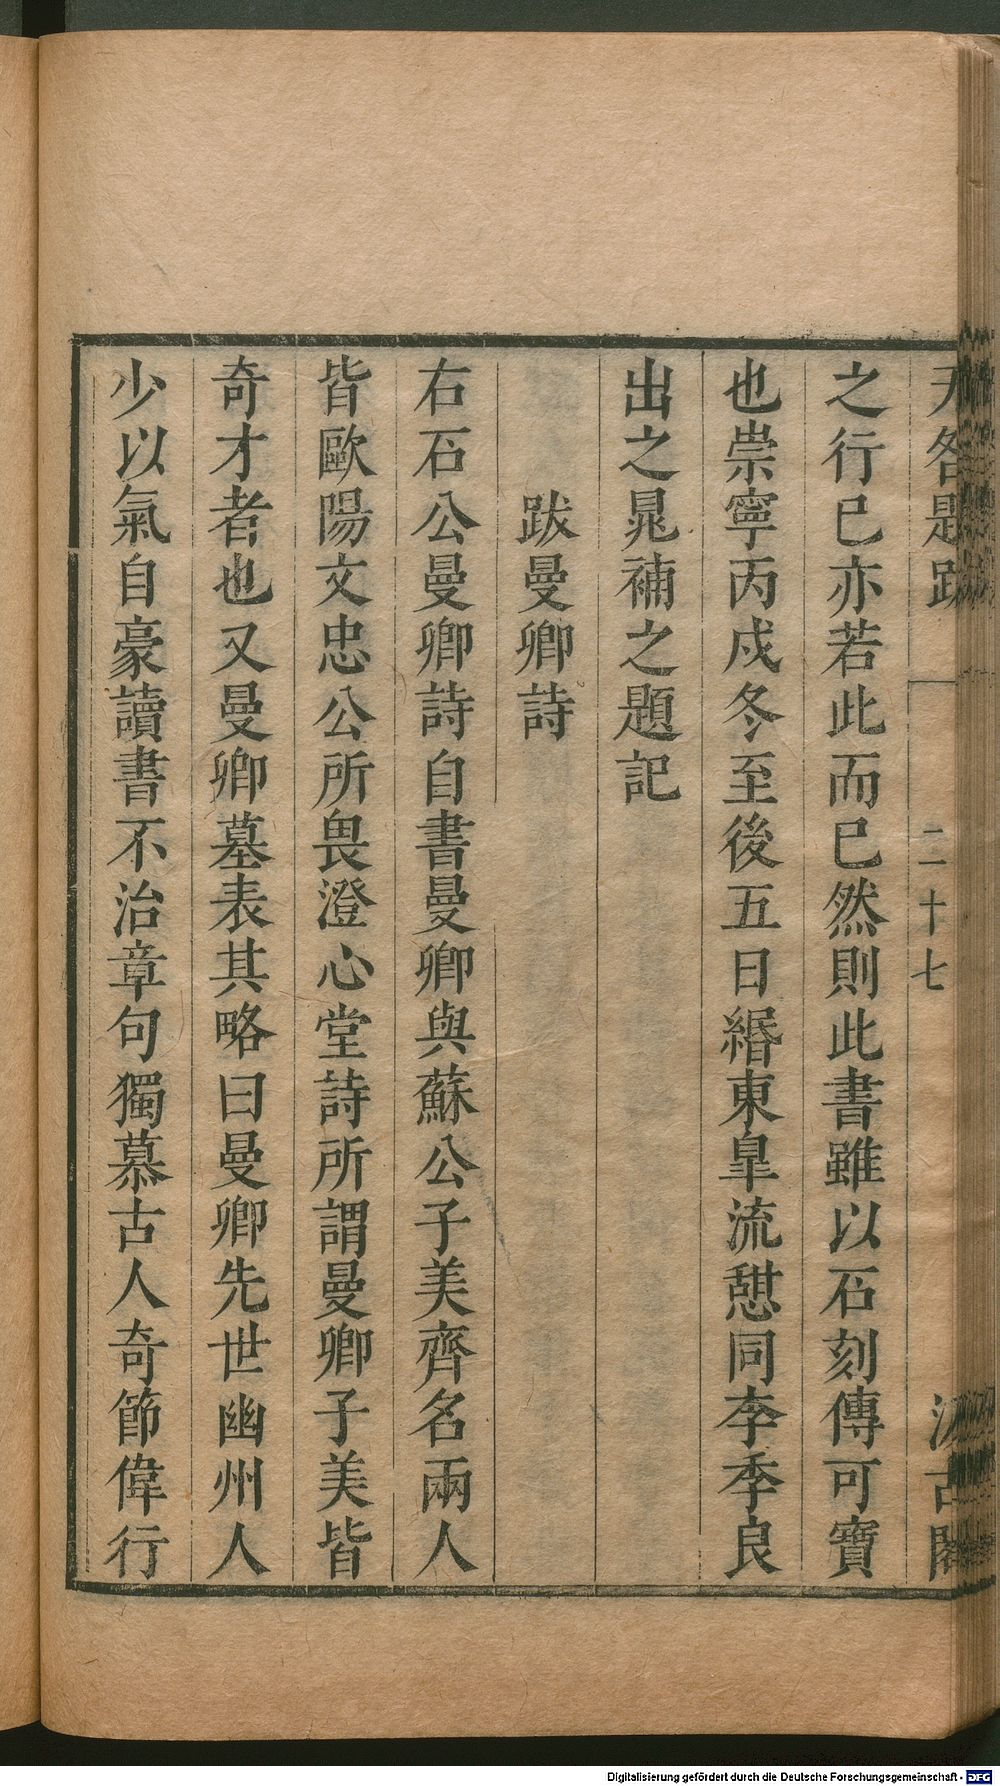 无咎題跋 二十七 汲古閣
之行已亦若此而已然則此書雖以石刻傳可寶
也崇寧丙戍冬至後五日緡東皐流憇同李季良
出之晁補之題記
跋曼卿詩
右石公曼卿詩自書曼卿與蘇公子美齊名兩人
皆歐陽文忠公所畏澄心堂詩所謂曼卿子美皆
奇才者也又曼卿墓表其略曰曼卿先世幽州人
少以氣自豪讀書不治章句獨慕古人奇節偉行
Digitalisierung gefördert durch die Deutsche Forschungsgemeinschaft - DFG